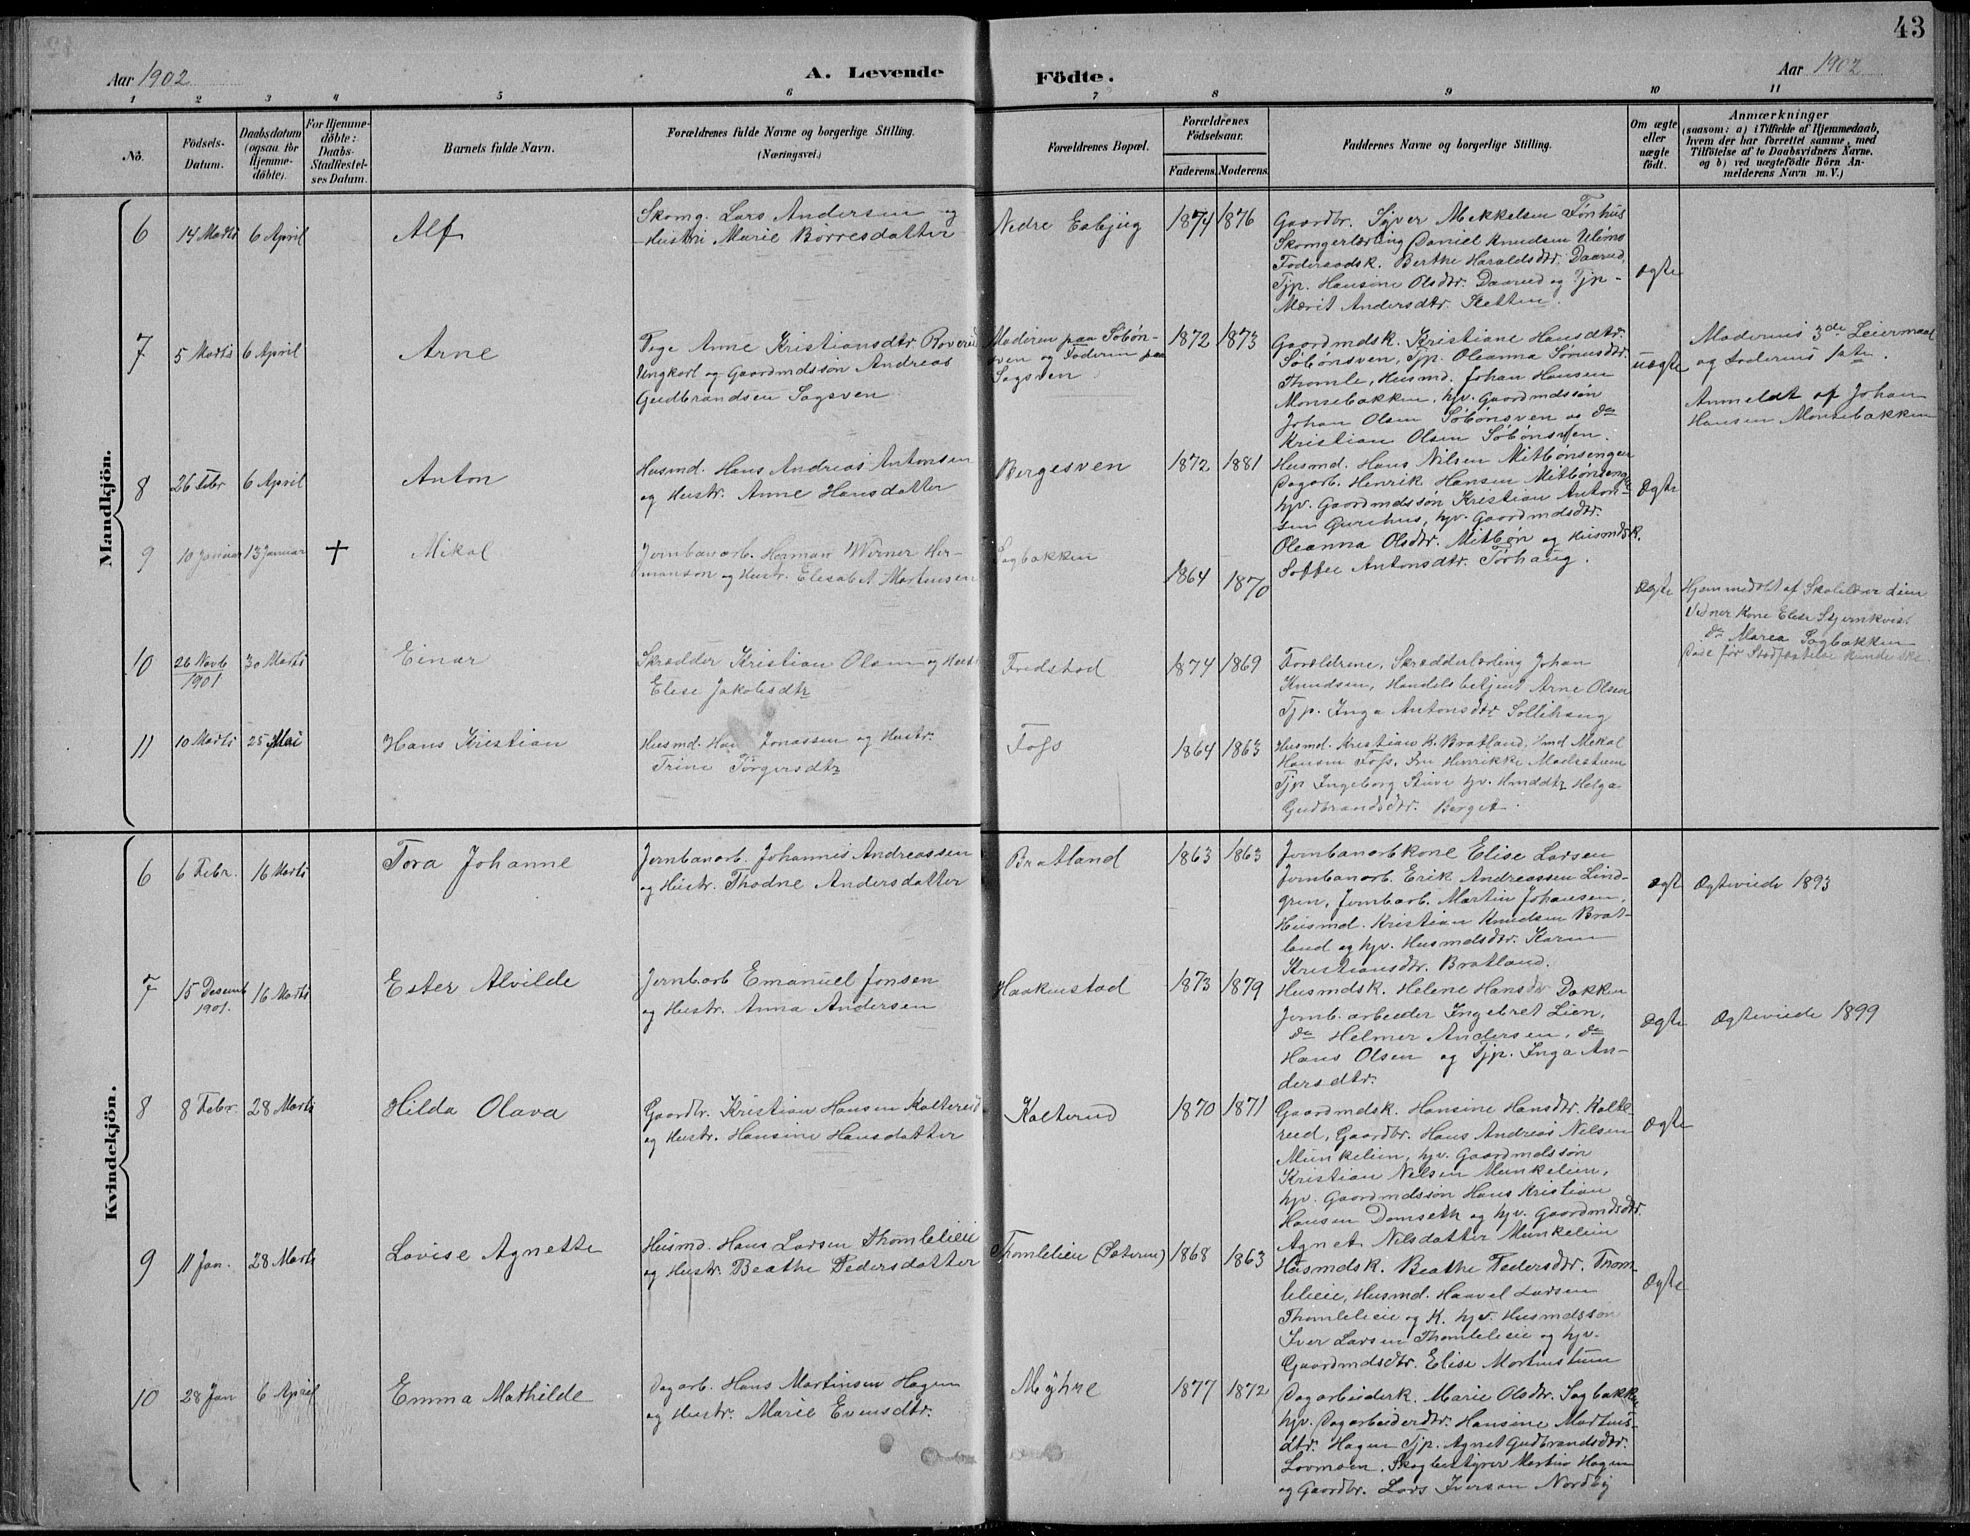 43
Aar 1902
A. Levende
Födte.
Aar 1902
1 2 3 4 5 6 7 8 9 10 11
No.
Födsels-
Datum.
Daabsdatum
(ogsaa for
Hjemme-
döbte).
For Hjemme-
döbte:
Daabs-
Stadfæstel-
ses Datum.
Barnets fulde Navn.
Forældrenes fulde Navne og borgerlige Stilling.
(Næringsvei.)
Forældrenes Bopæl.
Forældrenes
Födselsaar.
Faderens. Moderens.
Faddernes Navne og borgerlige Stilling.
Om ægte
eller
uægte
födt.
Anmærkninger
(saasom: a) i Tilfælde af Hjemmedaab,
hvem der har forrettet samme, med
Tilföielse af to Daabsvidners Navne,
og b) ved uægtefödte Börn An-
melderens Navn m. V.)
Mandkjön.
6 14 Marts 6 April Alf
Skomg. Lars Andersen og
Hustru Marie Börresdatter
Nedre Esbjug 1874 1876
Gaardbr. Syver Mikkelsen Fönhus
Skomgerlærling Daniel Knudsen
Foderaadsk. Berthe Haraldsdtr. Daarud,
Tjp. Hansine Olsdtr. Daarud og Tjp-
Marit Andersdtr. Sletten.
ægte
7 5 Marts 6 April Arne
Pige Anne Kristiansdtr
Ungkarl og Gaardmdssön Andreas
Gudbrandsen Sagsven
Moderen paa Söbön-
sven og Faderen paa
Sagsven
1872 1873
Gaardmdsk. Kristiane Hansdtr.
Söbönsven, Tjp. Oleanna
Thomle, Husmd. Johan Hansen
Monsebakken, hjv. Gaardmdssön
Johan Olsen Söbönsven og do
Kristian Olsen Söbönsven.
uægte
Moderens 3de Leiermaal
og Faderens 1ste.
Anmeldt af Johan
Hansen Monsebakken
8 26 Febr 6 April Anton
Husmd. Hans Andreas Antonsen
og Hustr. Anne Hansdatter
Bergesven 1872 1881
Husmd. Hans Nilsen Mitbönsengen
Dagarb. Henrik Hansen Mitbönsenge
hjv. Gaardmdssön Kristian Anton-
sen Qurihus, hjv. Gaardmdsdtr.
Oleanna Olsdtr. Mitbön og Husmdsk.
Soffie Antonsdtr. Törhaug.
Ægte
9 10 Januar 13 Januar † Mikal
Jernbanarb. Herman Werner Her-
manson og Hustr. Elisabet Martinsen
Sagbakken
1864 1870
Ægte
Hjemmedöbt af Skolelærer Lien
Vidner Kone Elise Stjernkvist
do Maren Sagbakken
Döde för Stadfæstelse kunde ske
10 26 Novb 1901 30 Marts Einar
Skrædder Kristian Olsen og Hustr.
Elise Jakobsdtr
Fredstad 1874 1869
Forældrene, Skrædderlærling Johan
Knudsen, Handelsbetjent Arne Olsen
Tjp. Inga Antonsdtr Sollihaug
11 10 Marts 25 Mai Hans Kristian
Husmd. Hans Jonassen og Hustr.
Trine Törgersdtr
Foss 1864 1863
Husmd. Kristian K. Bratland, Hmd Mikal
Hansen Foss, Fru Henrikke Madsstuen
Tjp Ingeborg Stuve hjv. Hmddtr Helga
Gudbrandsdtr. Berget.
Kvindekjön.
6 6 Febr. 16 Marts Tora Johanne
Jernbanarb. Johannes Andreassen
og Hustr. Thodne Andersdatter
Bratland 1863 1863
Jernbanarbkone Elise Larsen
Jernbanarb. Erik Andreassen Lind-
gren, Jernbarb. Martin Johansen,
Husmd. Kristian Knudsen Brat-
land og hjv. Husmdsdtr. Karen
Kristiansdtr. Bratland.
ægt Ægteviede 1893
7 15 Desemb 1901. 16 Marts Ester Alvilde
Jernbarb Emanuel Jonsen
og Hustr. Anna Andersen
Haakenstad 1873 1879
Husmdsk. Helene Hansdtr Dokken
Jernb. arbeider Ingebret Lien,
do Helmer Andersen, do
Hans Olsen og Tjp. Inga An-
dersdtr.
Ægte Ægteviede 1899
8 8 Febr. 28 Marts Hilda Olava
Gaardbr. Kristian Hansen Kalterud
og Hustr. Hansine Hansdatter
Kalterud 1870 1871
Gaardmdsk. Hansine Hansdtr. Kalte-
rud, Gaardbr. Hans Andreas Nilsen
Munkelien, hjv. Gaardmdssön
Kristian Nilsen Munkelien,
hjv. Gaardmdssön Hans Kristian
Hansen Domseth og hjv. Gaardmdsdtr.
Agnet Nilsdatter Munkelien
Ægte
9 11 Jan. 28 Marts Lovise Agnette
Husmd. Hans Larsen Thomleleie
og Hustr. Beathe Pedersdatter
Thomleleie (Sæteren) 1868 1863
Husmdsk. Beathe Pedersdtr. Thom-
leleie, Husmd. Haavel Larsen
Thomleleie og K. hjv. Husmdssön
Iver Larsen Thomleleie og hjv.
Gaardmdsdtr. Elise Mortenstuen
Ægte
10 28 Jan 6 April Emma Mathilde
Dagarb. Hans Martinsen Hagen
og Hustr. Marie Evensdtr.
Myhre 1877 1872
Dagarbeiderk. Marie Olsdtr. Sagbakke
hjv. Dagarbeiderdtr. Hansine Martins-
dtr. Hagen Tjp. Agnet Gudbrandsdtr.
Lovmoen, Skogbestyrer Martin Hagen
og Gaardbr. Lars Iversen Nordby